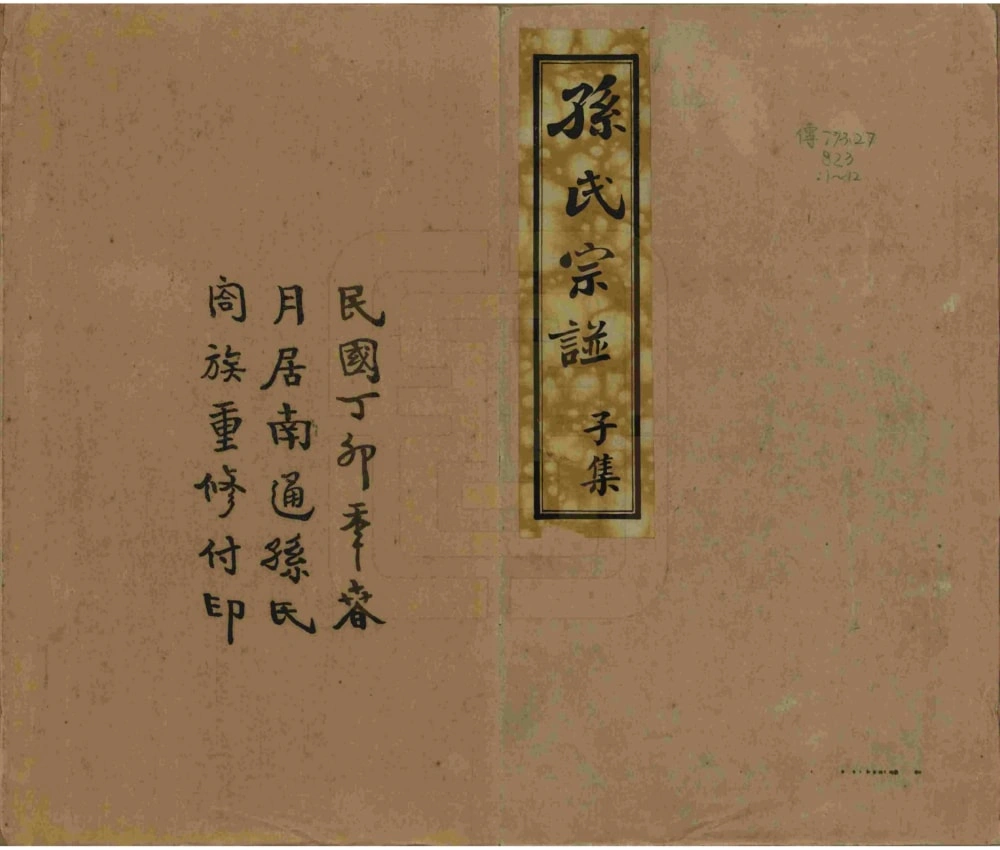 傳 773.27
823
:1~12
孫氏宗譜 子集
民國丁卯年春
月居南通孫氏
閤族重修付印